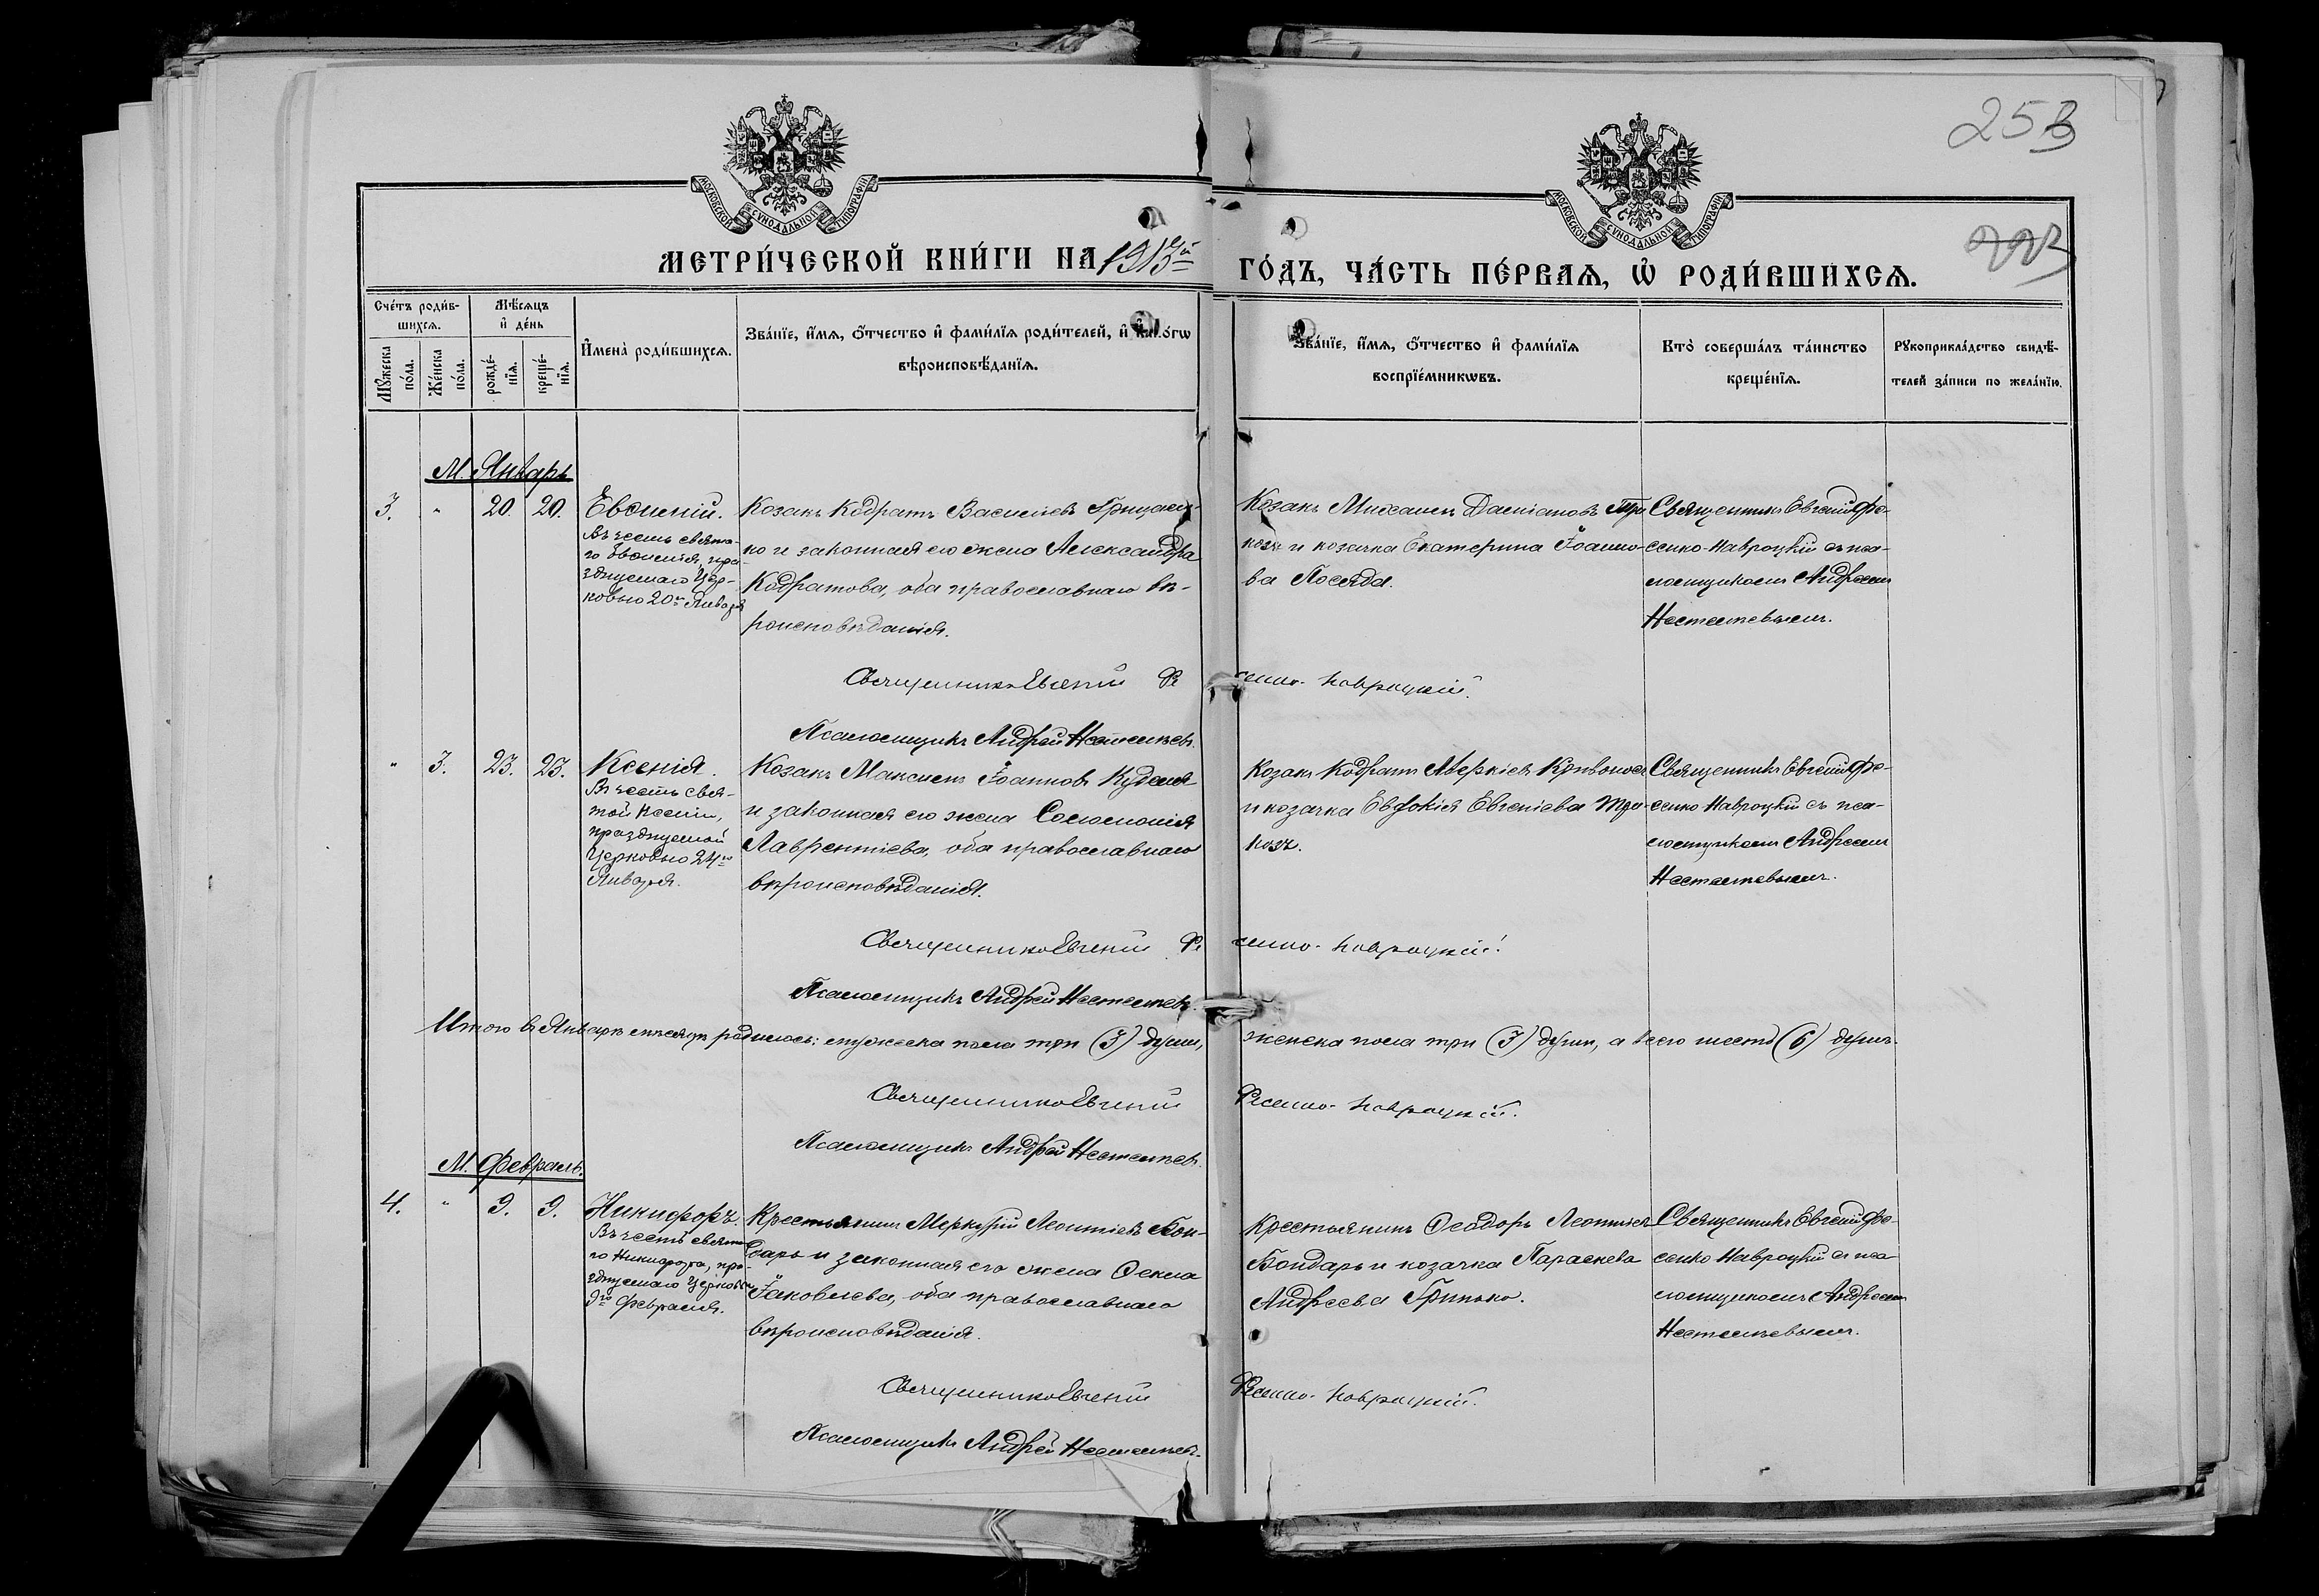 253
МОСКОВСКОЙ СУНОДАЛЬНОЙ ТИПОГРАФІИ
МОСКОВСКОЙ СУНОДАЛЬНОЙ ТИПОГРАФІИ
МЕТРИ́ЧЕСКОЙ КНИ́ГИ НА 1913й
ГО́ДЪ, ЧА́СТЬ ПЕ́РВАЯ, Ѡ РОДИ́ВШИХСЯ.
Сче́тъ роди́в-
шихся.
Мѣ́сяцъ
и де́нь
Му́жеска
по́ла.
Же́нска
по́ла.
рожде́-
нїя.
креще́-
нїя.
Имена̀ роди́вшихся.
Зва́нїе, и́мя, о́тчество и фами́лїя роди́телей, и како́гѡ
вѣроисповѣ́данїя.
Зва́нїе, и́мя, о́тчество и фами́лїя
воспрїе́мникѡвъ.
Кто̀ соверша́лъ та́инство
креще́нїя.
Рукоприкла́дство свидѣ́-
телей за́писи по жела́нїю.
М. Январь
3. " 20. 20. Евѳимій.
Въ честь свята-
го Евѳимія, пра-
зднуемаго Цер-
ковью 20го Января
Козакъ Кодратъ Василіевъ Грицаен-
ко и законная его жена Александра
Кодратова, оба православнаго вѣ-
роисповѣданія.
Козакъ Михаилъ Даміановъ Тро
козъ и козачка Екатерина Іоанно-
ва Посяда.
Священникъ Евгеній Фе-
сенко-Навроцкій съ пса-
ломщикомъ Андреемъ
Священникъ Евгеній Фесенко-Навроцкій.
Псаломщикъ Андрей
" 3. 23. 23. Ксенія.
Въ честь свя-
той Ксеніи,
празднуемой
Церковью 24го
Января.
Козакъ Максимъ Іоанновъ Куделя
и законная его жена Соломонія
Лаврентіева, оба православнаго
вѣроисповѣданія.
Козакъ Кодратъ Аверкіевъ Кривонос
и козачка Евдокія Евгеніева Тро-
козъ.
Священникъ Евгеній Фе-
сенко-Навроцкій съ пса-
ломщикомъ Андреемъ
Священникъ Евгеній Фесенко-Навроцкій.
Псаломщикъ Андрей
Итого въ Январѣ мѣсяцѣ родилось: мужеска пола три (3) души, женска пола три (3) души, а всего шесть (6) душъ.
Священникъ Евгеній Фесенко-Навроцкій.
Псаломщикъ Андрей
М. Февраль.
4. " 9. 9. Никифоръ.
Въ честь свята-
го Никифора, пра-
зднуемаго Церковью
9го Февраля.
Крестьянинъ Меркурій Леонтіевъ Бон-
дарь и законная его жена Ѳекла
Іаковлева, оба православнаго
вѣроисповѣданія.
Крестьянинъ Ѳеодоръ Леонтіевъ
Бондарь и козачка Параскева
Андреева Гринько.
Священникъ Евгеній Фе-
сенко Навроцкій съ пса-
ломщикомъ Андреемъ
Священникъ Евгеній Фесенко-Навроцкій.
Псаломщикъ Андрей